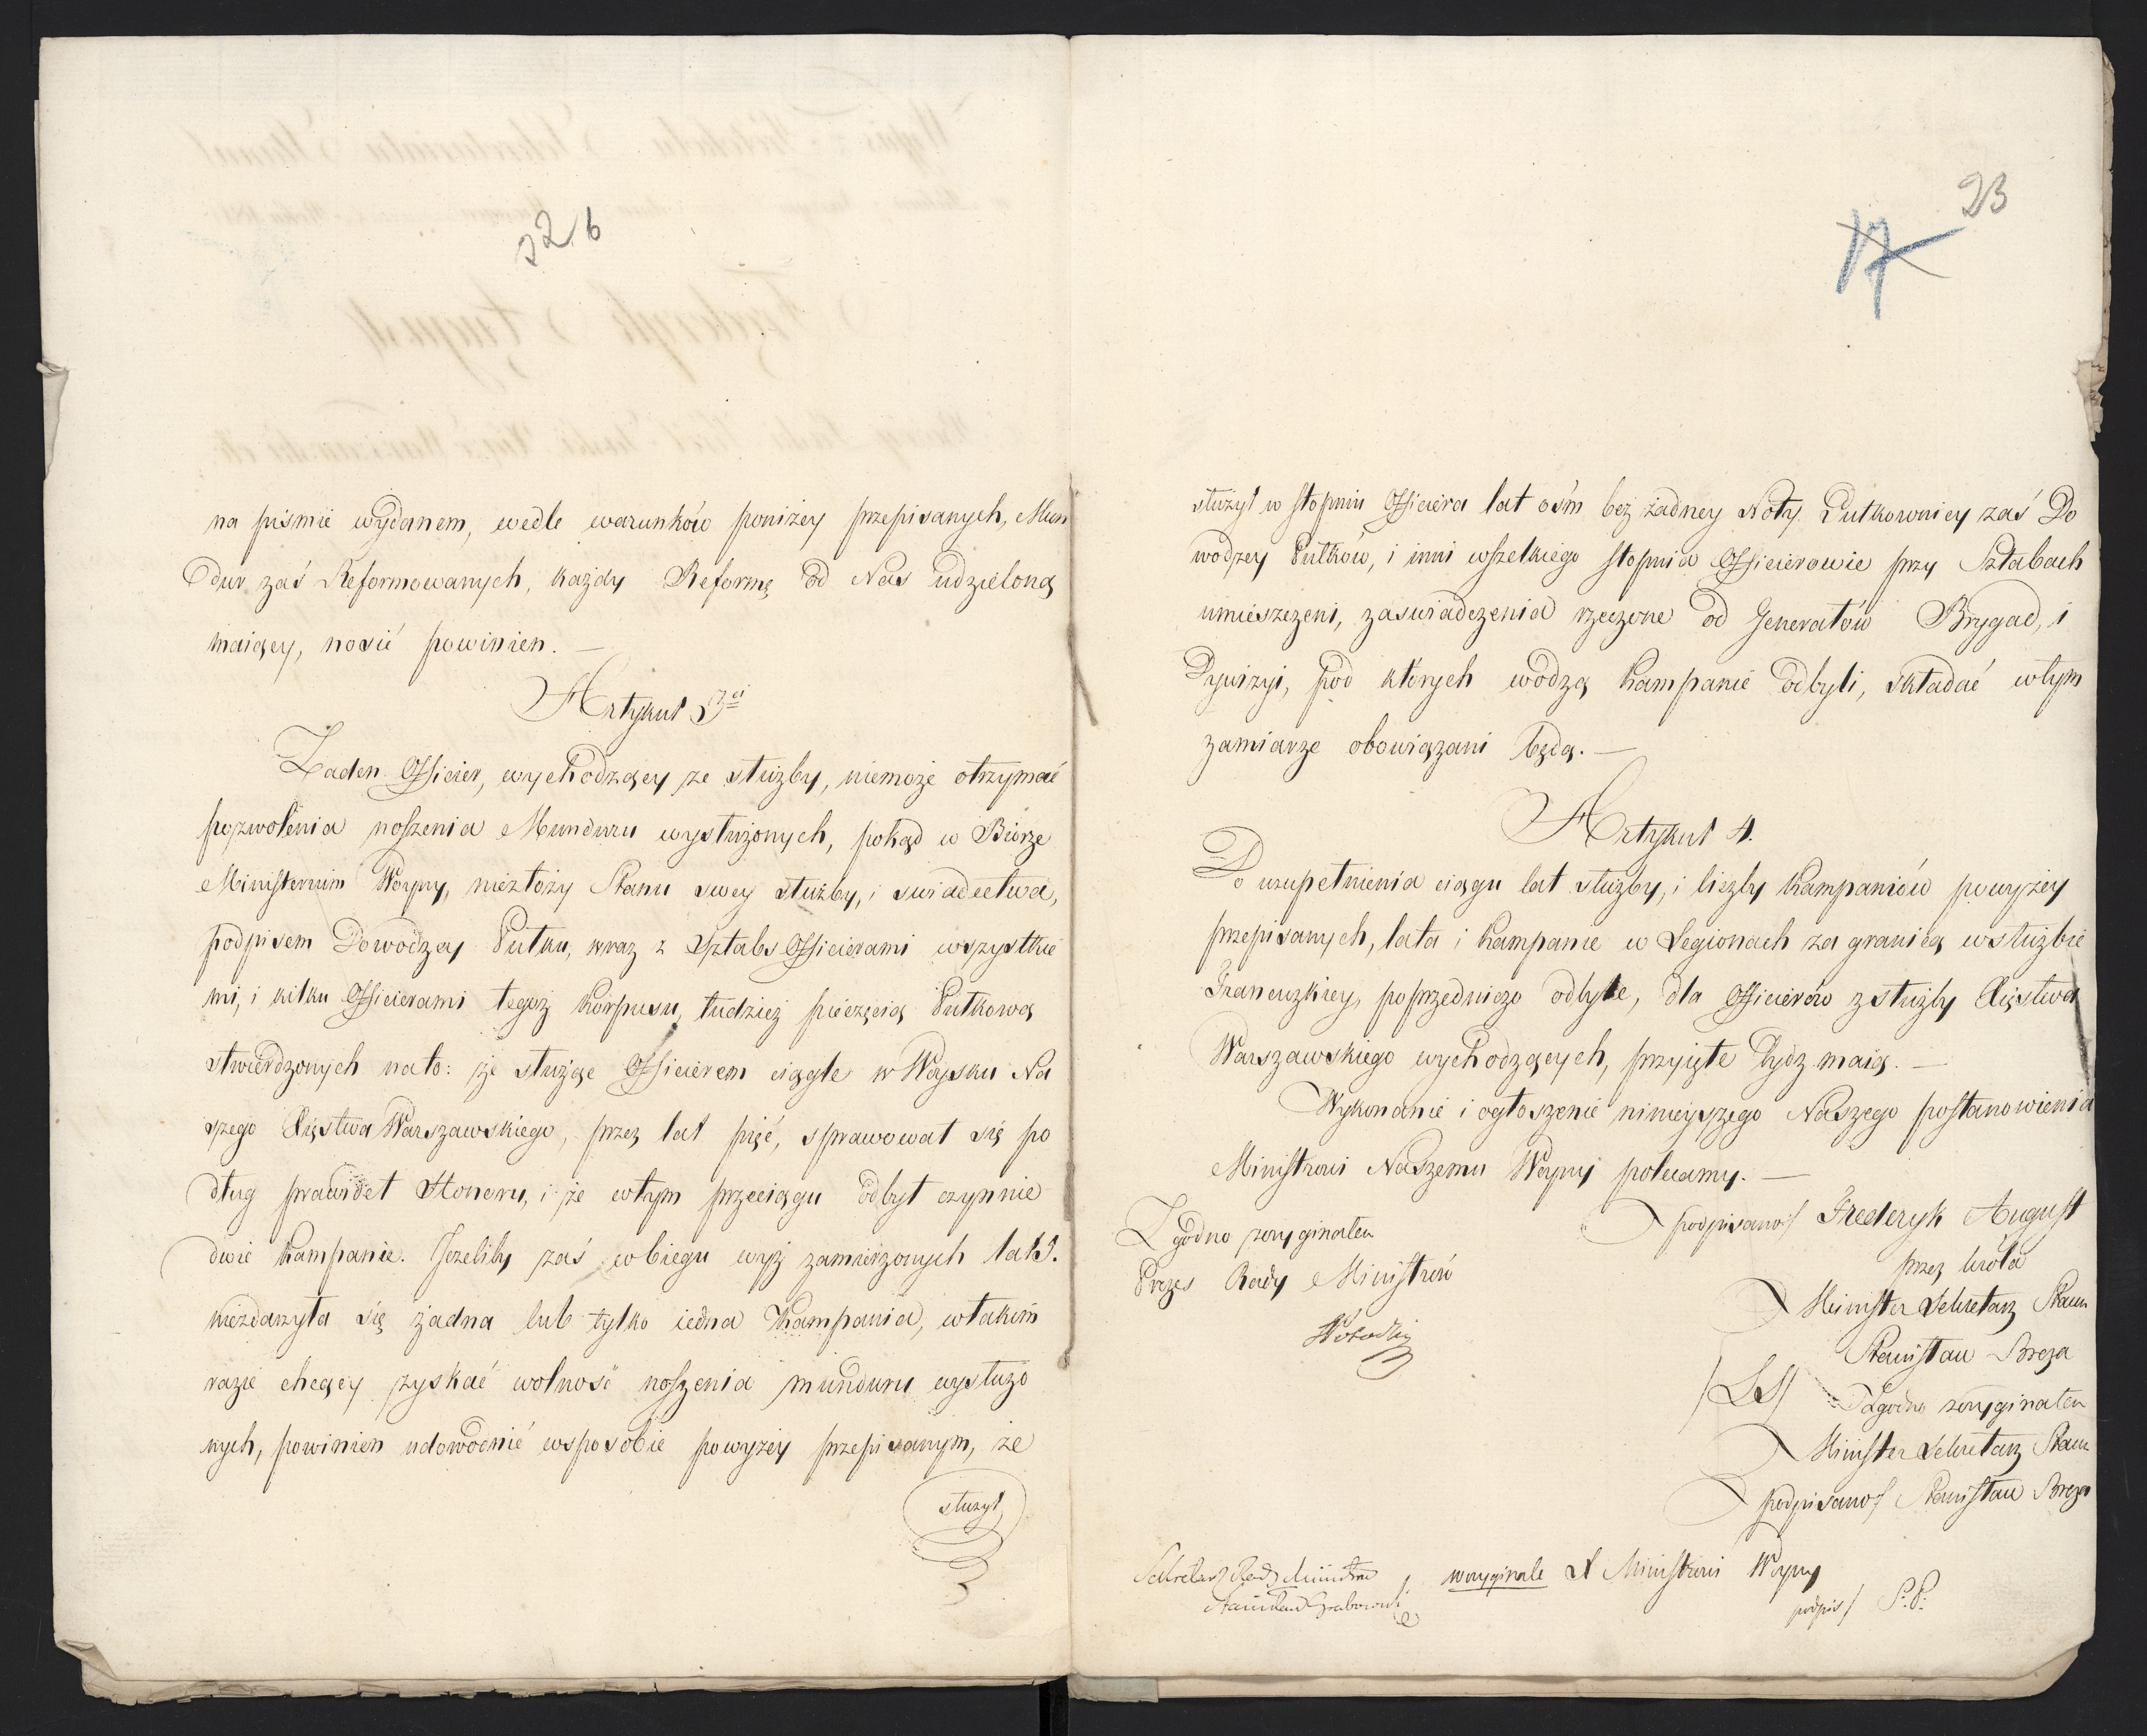 22 b
na piśmie wydanem, wedle warunków poniżey przepisanych, Mun
dur zaś Reformowanych, każdy Reformę od Nas udzieloną
maiący, nosić powinien. —
Artykuł 3ci
Żaden Officier, wychodzący ze służby, niemoże otrzymać
pozwolenia noszenia Munduru wysłużonych, pokąd w Biórze
Ministerium Woyny, niezłoży Stanu swey służby, i świadectwa,
podpisem Dowodzcy Pułku, wraz z Sztabs Officierami wszystkie
mi, i kilku Officierami tegoż Korpusu, tudzież pieczęcią Pułkową
stwierdzonych na to: że służąc Officierem ciągle w Woysku Na
szego Xięstwa Warszawskiego, przez lat pięć, sprawował się po
dług prawideł Honoru, i że wtym przeciągu odbył czynnie
dwie Kampanie. Jeżeliby zaś wbiegu wyż zamierzonych lat 5.
niezdarzyła się żadna lub tylko iedna Kampania, wtakim
razie chcący zyskać wolność noszenia munduru wysłużo
nych, powinien udowodnić wsposobie powyżey przepisanym, że
służył
23
17
służył w stopniu Officiera lat ośm bez żadney Noty. Pułkownicy zaś Do
wodzcy Pułków, i inni wszelkiego stopnia Officierowie przy Sztabach
umieszczeni, zaświadczenia rzeczone od Jenerałów Brygad, i
Dywizyi, pod których wodzą Kampanie odbyli, składać wtym
zamiarze obowiązani będą. —
Artykuł 4.
Do uzupełnienia ciągu lat służby, i liczby Kampaniów powyżey
przepisanych, lata i Kampanie w Legionach za granicą wsłużbie
Francuzkiey, poprzedniczo odbyte, dla Officierów zsłużby Xięstwa
Warszawskiego wychodzących, przyięte bydz maią. —
Wykonanie i ogłoszenie ninieyszego Naszego postanowienia
Ministrowi Naszemu Woyny polecamy. —
podpisano/ Frederyk August
przez Króla
Minister Sekretarz Stanu
Stanisław Breza
/LS/ Zgodno zoryginałem
Minister Sekretarz Stanu
podpisano/ Stanisław Breza
Zgodno zoryginałem
Prezes Rady Ministrów
Potocki
Sekretarz Rady Ministrów
Stanisław Grabowski
woryginale N Ministrowi Woyny
podpis/ P. P.